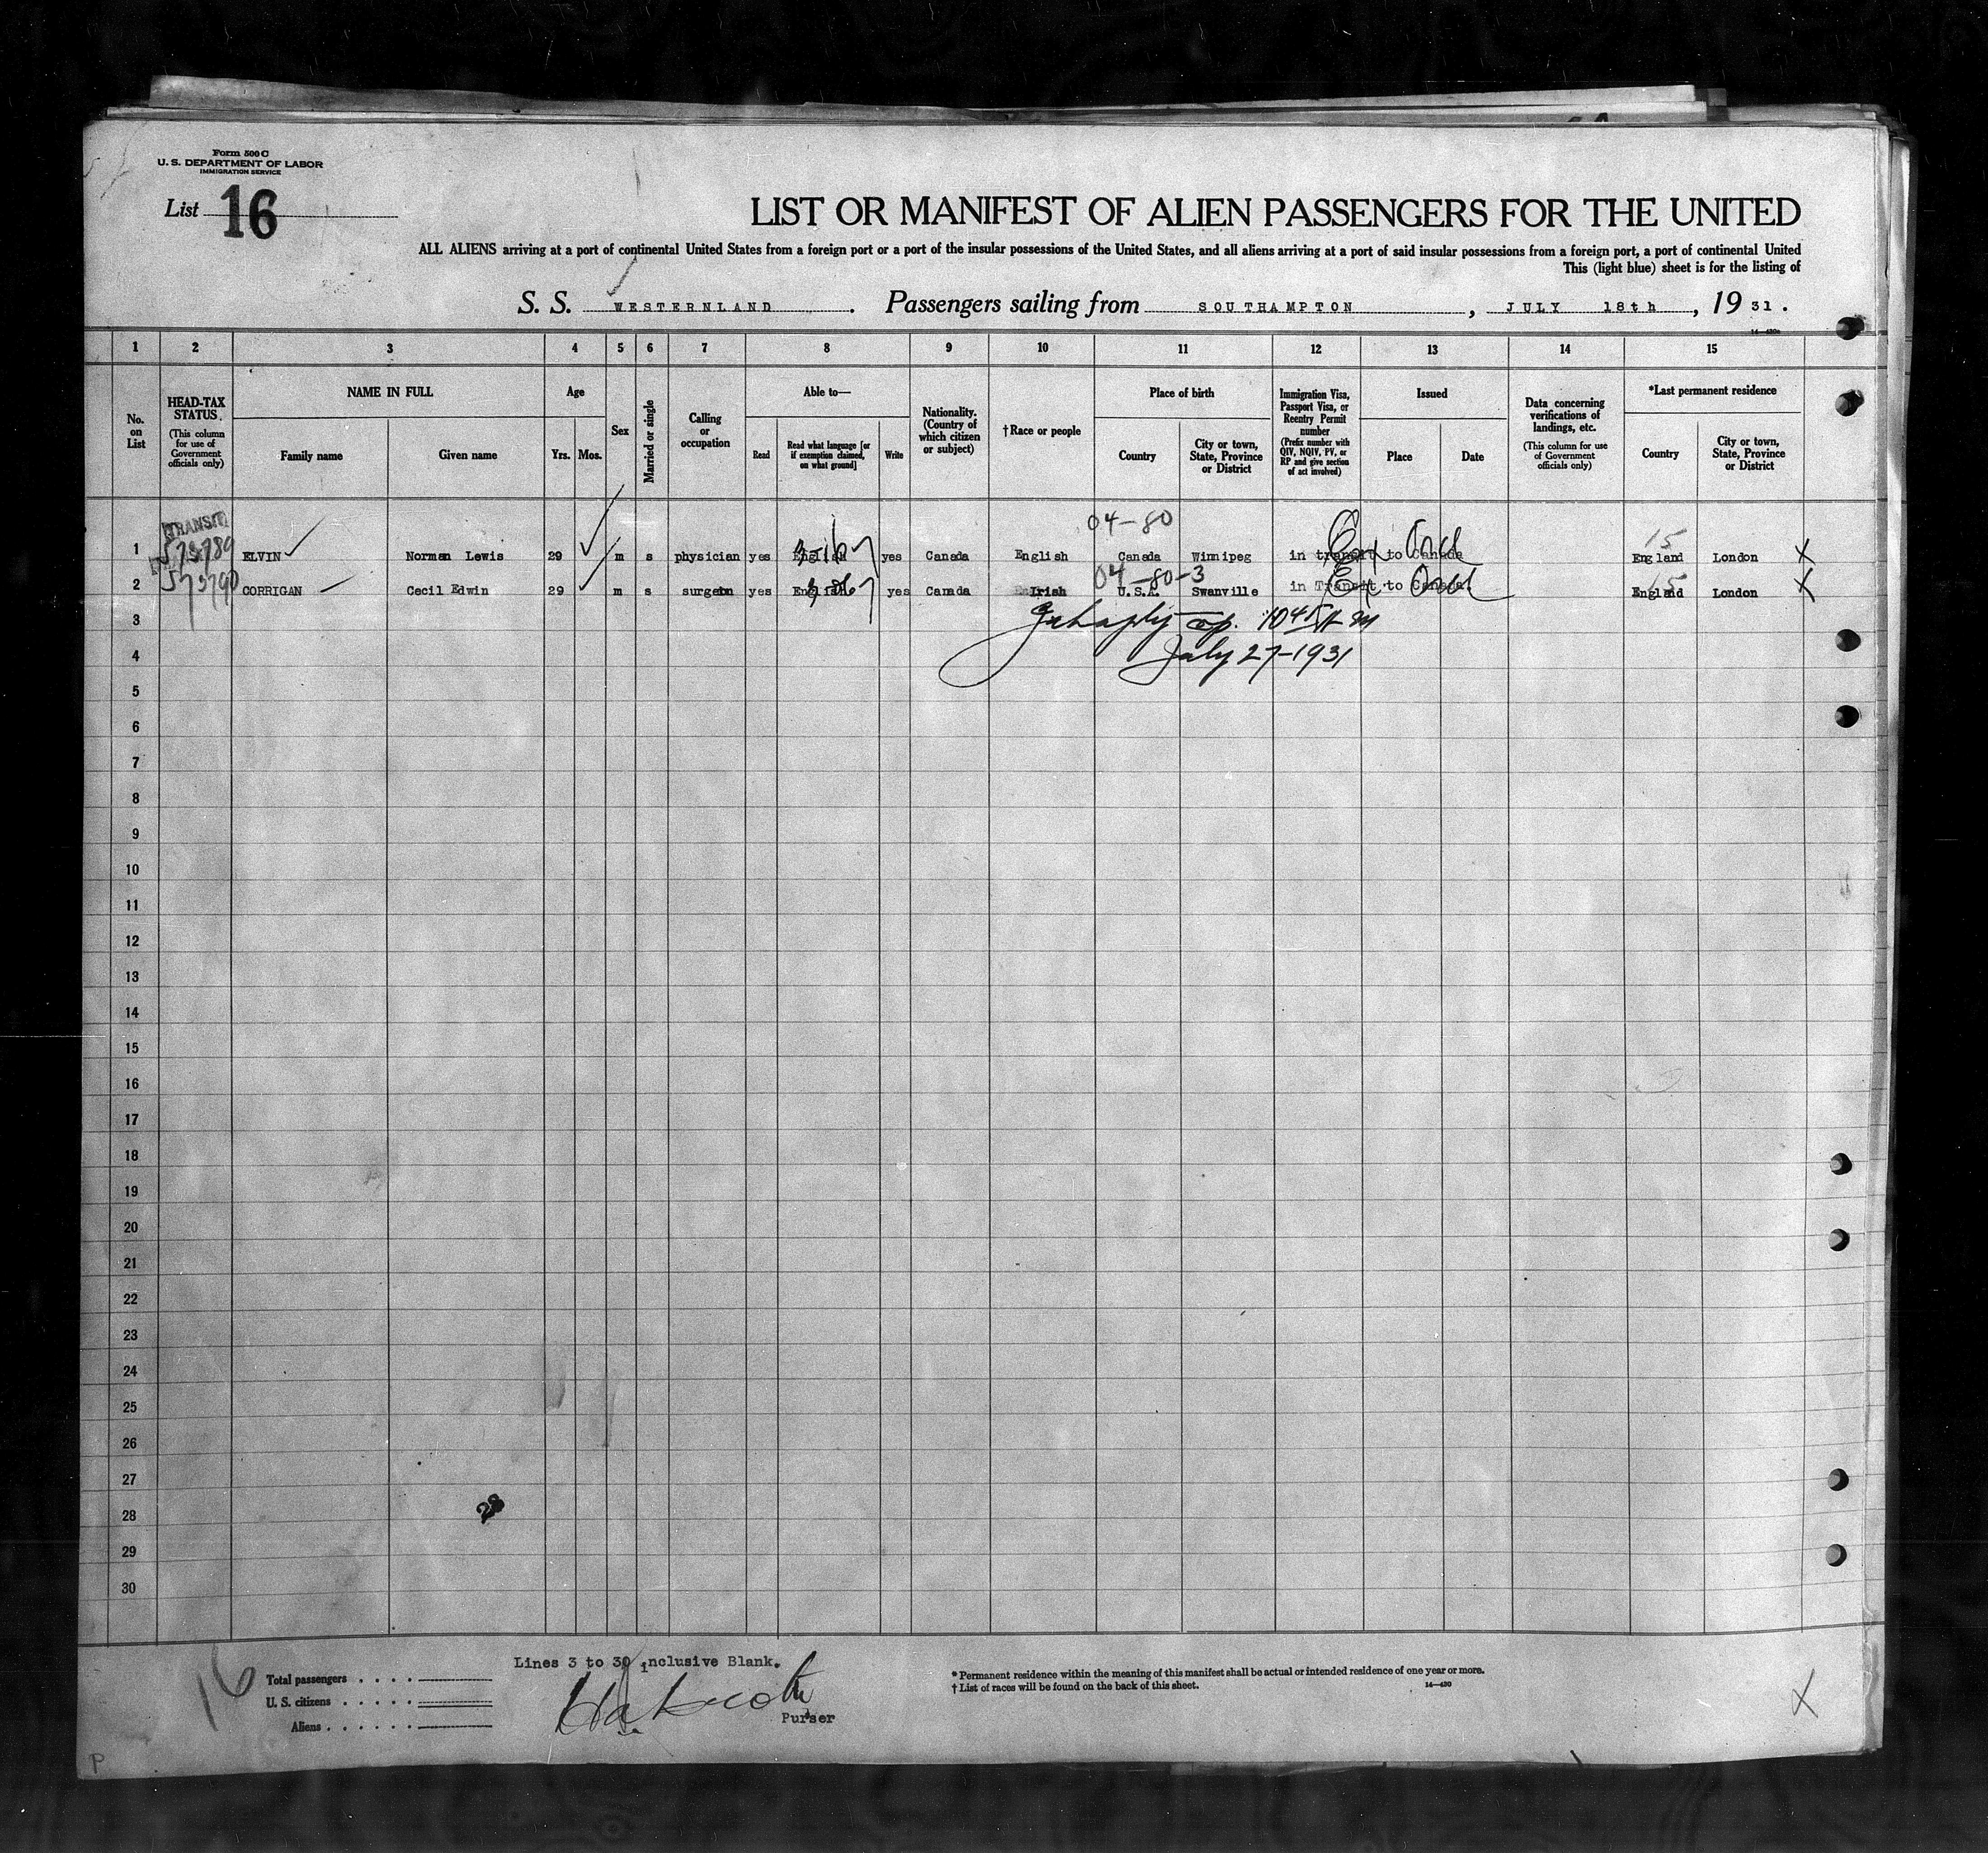 Form 500 C
U. S. DEPARTMENT OF LABOR
IMMIGRATION SERVICE
List 16
LIST OR MANIFEST OF ALIEN PASSENGERS FOR THE UNITED
ALL ALIENS arriving at a port of continental United States from a foreign port or a port of the insular possessions of the United States, and all aliens arriving at a port of said insular possessions from a foreign port, a port of continental United
This (light blue) sheet is for the listing of
S. S. WESTERNLAND. Passengers sailing from SOUTHAMPTON, JULY 18th, 19 31.
1 2 3 4 5 6 7 8 9 10 11 12 13 14 15
No. on List
HEAD-TAX STATUS
(This column for use of Government officials only)
NAME IN FULL
Family name
Given name
Age
Yrs. Mos.
Sex
Married or single
Calling or occupation
Able to—
Read
Read what language [or if exemption claimed, on what ground]
Write
Nationality. (Country of which citizen or subject)
†Race or people
Place of birth
Country
City or town, State, Province or District
Immigration Visa, Passport Visa, or Reentry Permit number
(Prefix number with QIV, NQIV, PV, or RP and give section of act involved)
Issued
Place
Date
Data concerning verifications of landings, etc.
(This column for use of Government officials only)
*Last permanent residence
Country
City or town, State, Province or District
TRANSIT
04-80 15
1 ELVIN Norman Lewis 29 m s physician yes English yes Canada English Canada Winnipeg in transit to Canada England London X
04-80-3 15
2 CORRIGAN Cecil Edwin 29 m s surgeon yes English yes Canada Irish U.S.A. Swanville in Transit to Canada England London X
3
4 July 27-1931
5
6
7
8
9
10
11
12
13
14
15
16
17
18
19
20
21
22
23
24
25
26
27
28
29
30
16
Total passengers
U. S. citizens
Aliens
Lines 3 to 30 inclusive Blank.
Purser
* Permanent residence within the meaning of this manifest shall be actual or intended residence of one year or more.
† List of races will be found on the back of this sheet.
14—430
X
P